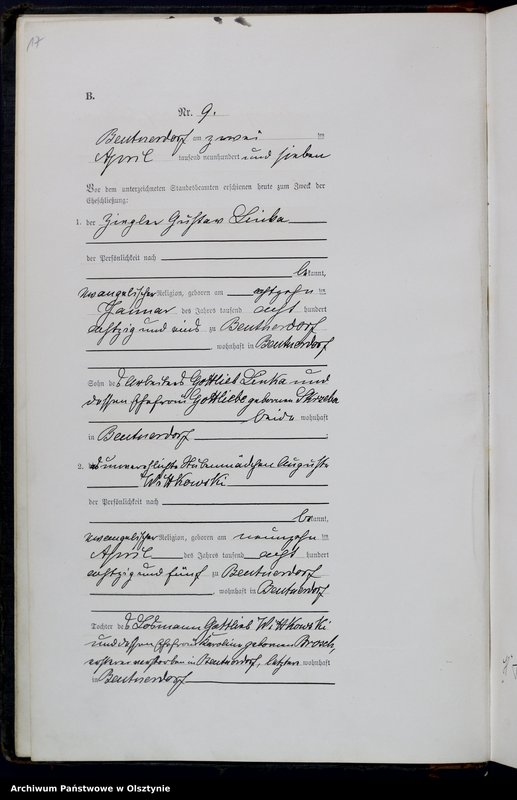 17
B.
Nr. 9.
Beutnerdorf am zwei ten
April tausend neunhundert und sieben
Vor dem unterzeichneten Standesbeamten erschienen heute zum Zweck der
Eheschließung:
1. der Ziegler Gustav Linka
der Persönlichkeit nach
bekannt,
evangelischer Religion, geboren am achtzehn ten
Januar des Jahres tausend acht hundert
achtzig und eins zu Beutnerdorf
, wohnhaft in Beutnerdorf
Sohn des Arbeiters Gottlieb Linka und
dessen Ehefrau Gottliebe geborenen
beide wohnhaft
in Beutnerdorf
2. die unverehelichte Stubenmädchen Auguste
Wittkowski
der Persönlichkeit nach
bekannt,
evangelischer Religion, geboren am neunzehn ten
April des Jahres tausend acht hundert
achtzig und fünf zu Beutnerdorf
, wohnhaft in Beutnerdorf
Tochter des Losmann Gottlieb Wittkowski
und dessen Ehefrau Karoline geborenen Brosch,
ersterer verstorben in Beutnerdorf, letztere wohnhaft
in Beutnerdorf
Archiwum Państwowe w Olsztynie